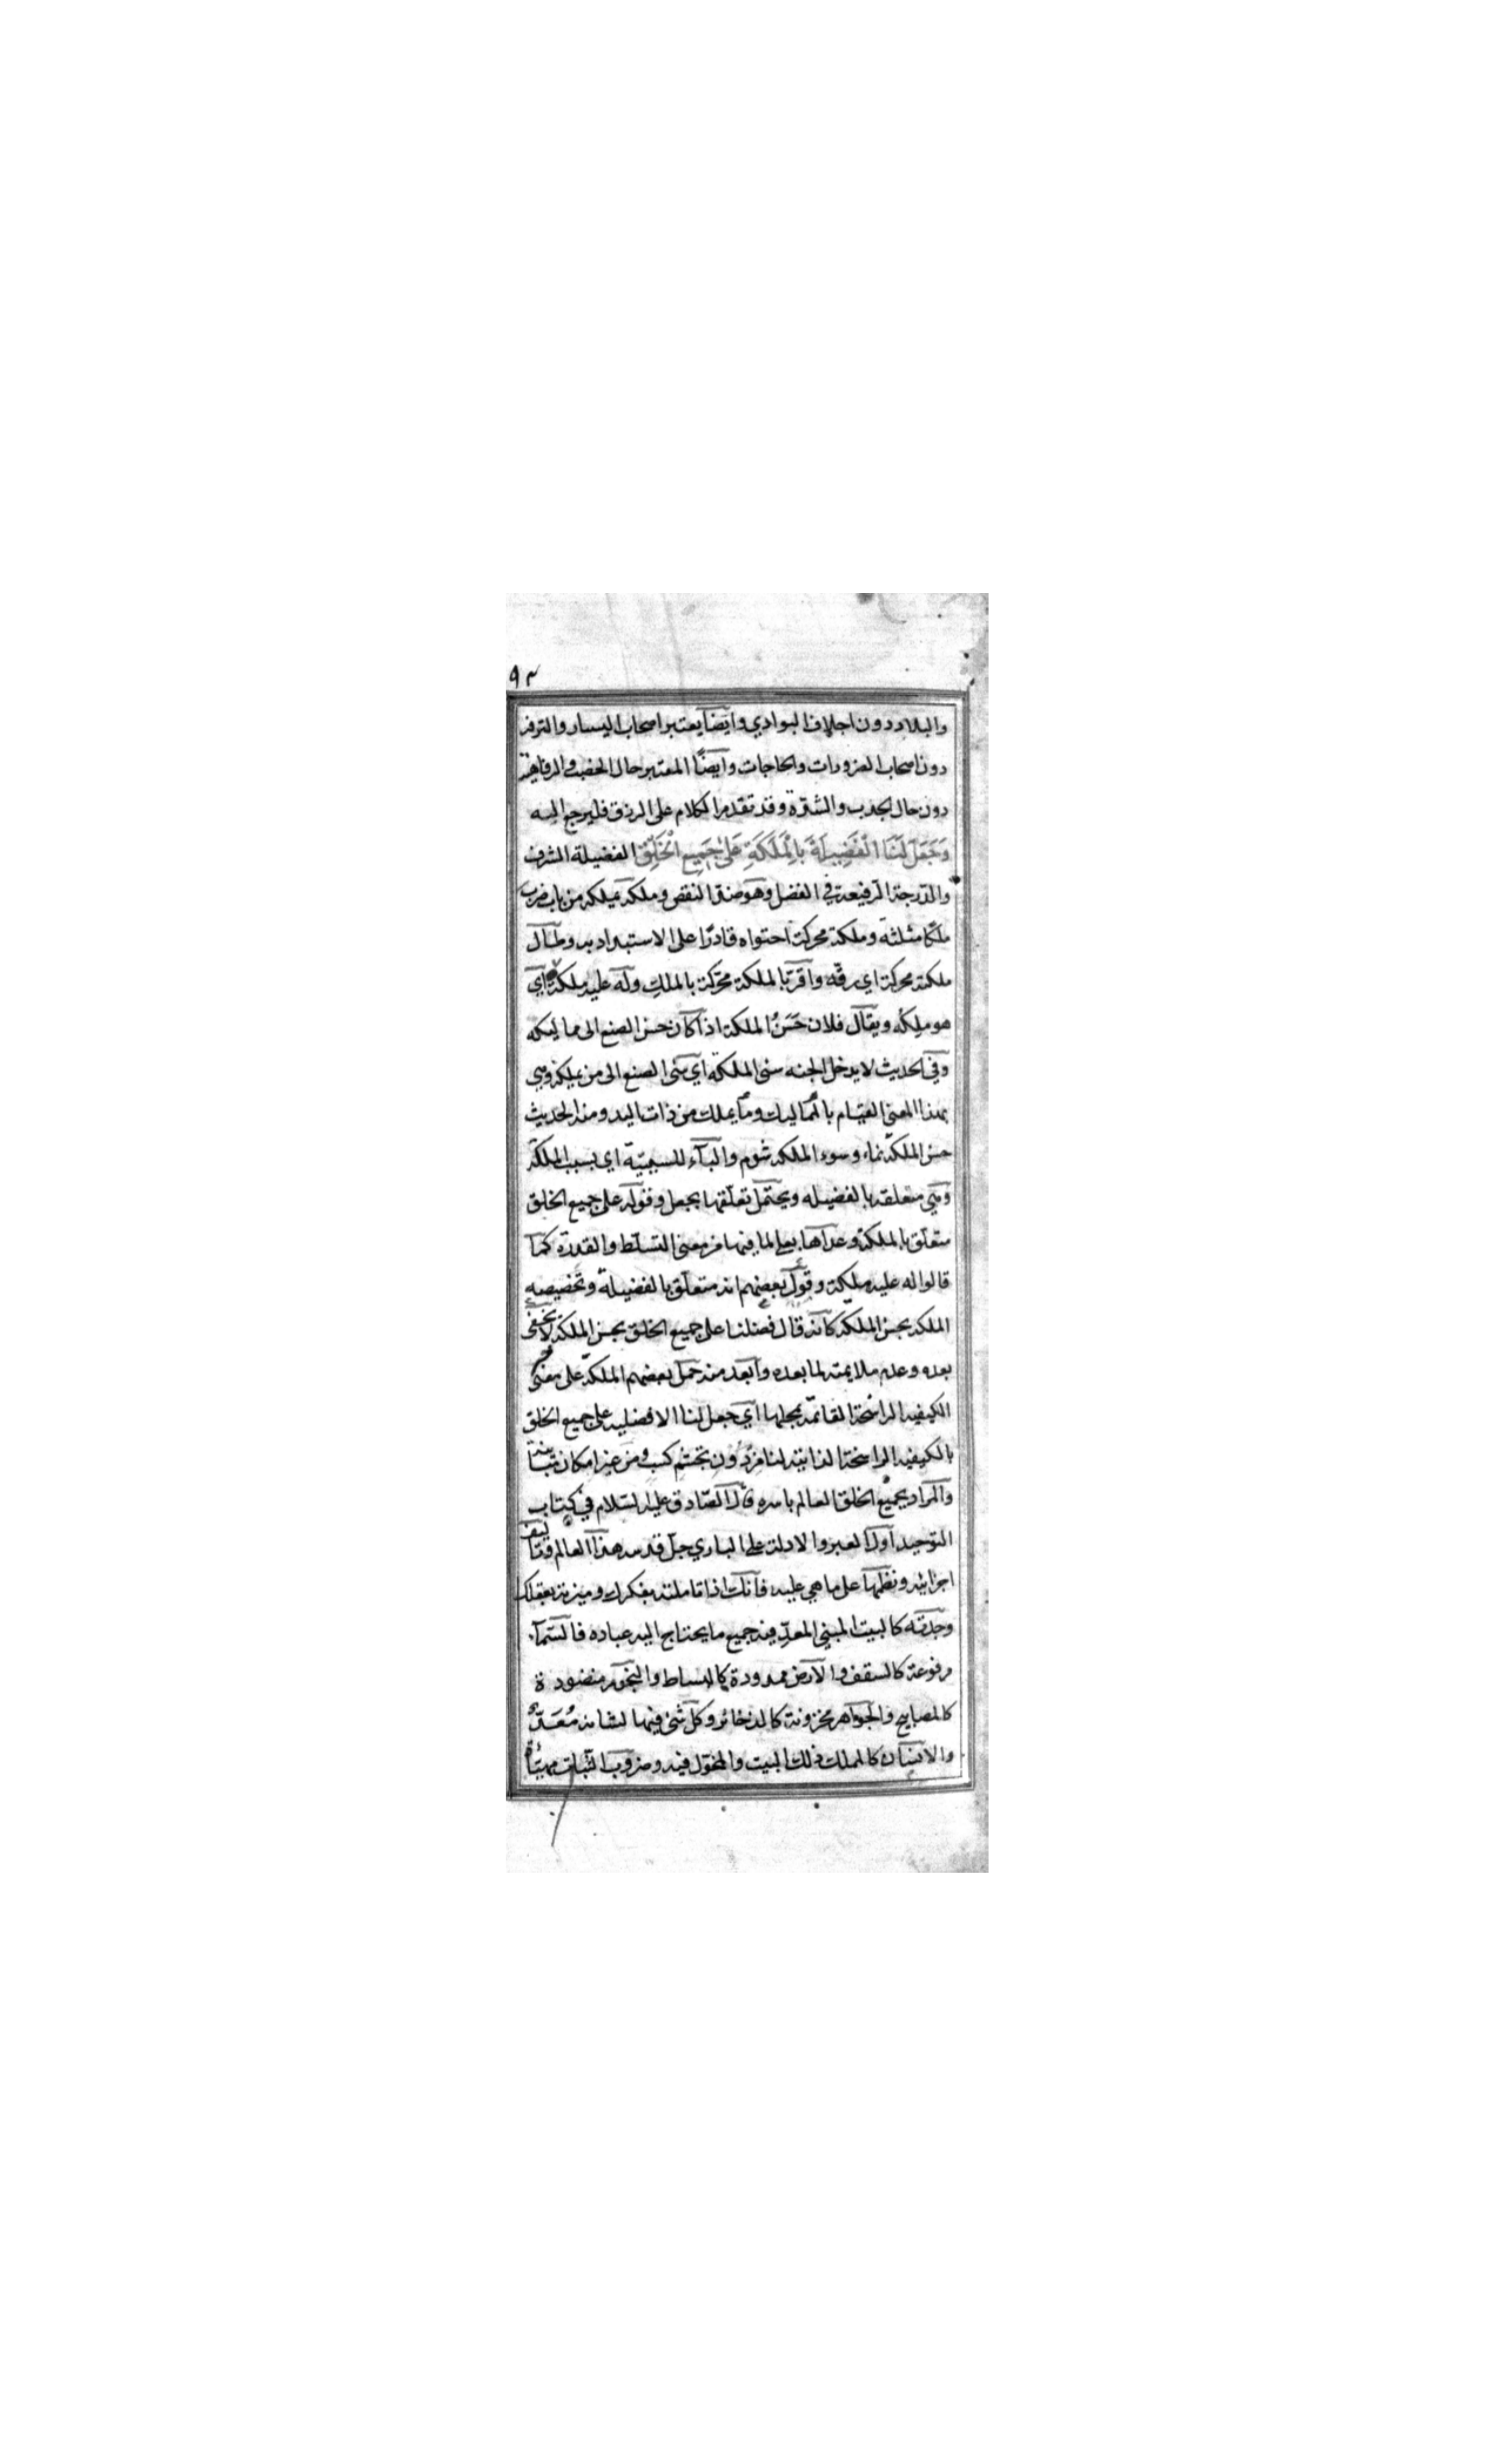 ٩٣
والبلاد دون اجلاف البوادي وايضا يعتبر اصحاب اليسار والترفه
دون اصحاب الضرورات والحاجات وايضًا المعتبر حال الخصب والرفاهية
دون حال الجدب والشدّة وقد تقدم الكلام على الرزق فليرجع اليه
وَجَعَلَ لَنَا الْفَضِيلَةَ بِالْمَلَكَةِ عَلىٰ جَمِيعِ الْخَلْقِ الفضيلة الشرف
والدّرجة الرفيعة في الفضل وهو ضد النقص وملكه يملكه من باب ضرب
ملكًا مثلثه وملكة محركة احتواه قادرًا على الاستبداد به وطال
ملكته محركة اي رقّه واقرّ بالملكة محرّكة بالملك وله عليه ملكة اي
هو ملكه ويقال فلان حَسَنُ الملكة اذا كان حسن الصنع الى مماليكه
وفي الحديث لا يدخل الجنه سئ الملكة اي سئ الصنع الى من يملكه وهي
بهذا المعنى القيام بالمماليك وما يملك من ذات اليد ومنه الحديث
حسن الملكة نماء وسوء الملكه شوم والباء للسببيّة اي بسبب الملكة
وهي متعلقه بالفضيله ويحتمل تعلّقها بجعل وقوله على جميع الخلق
متعلّق بالملكة وعداها بعلى لما فيها من معنى التسلّط والقدرة كما
قالوا له عليه ملكة وقول بعضهم انه متعلّق بالفضيلة وتخصيصه
الملكه بحسن الملكه كانه قال فضلنا على جميع الخلق بحسن الملكة لا يخفى
بعده وعدم ملايمته لما بعده وابعد منه حمل بعضهم الملكة على معنى
الكيفيه الراسخة القائمة بمحلها اي جعل لنا الافضليه على جميع الخلق
بالكيفيه الراسخة الذاتية لنا من دون تجشّم كسب ومن غير امكان تباينه
والمراد بجميع الخلق العالم باسره قال الصّادق عليه السّلام في كتاب
التوحيد اول العبر والادلة على الباري جلّ قدسه هذا العالم وتاليف
اجزائه ونظمها على ما هي عليه فانك اذا تاملته بفكرك وميزته بعقلك
وجدته كالبيت المبني المعدّ فيه جميع ما يحتاج اليه عباده فالسّمآء
مرفوعة كالسقف والارض ممدودة كالبساط والنجوم منضودة
كالمصابيح والجواهر مخزونة كالذخائر وكل شئ فيها لشانه مُعَدٌّ
والانسان كالمملك ذلك البيت والمخوّل فيه وضروب النّبات مهيّأة